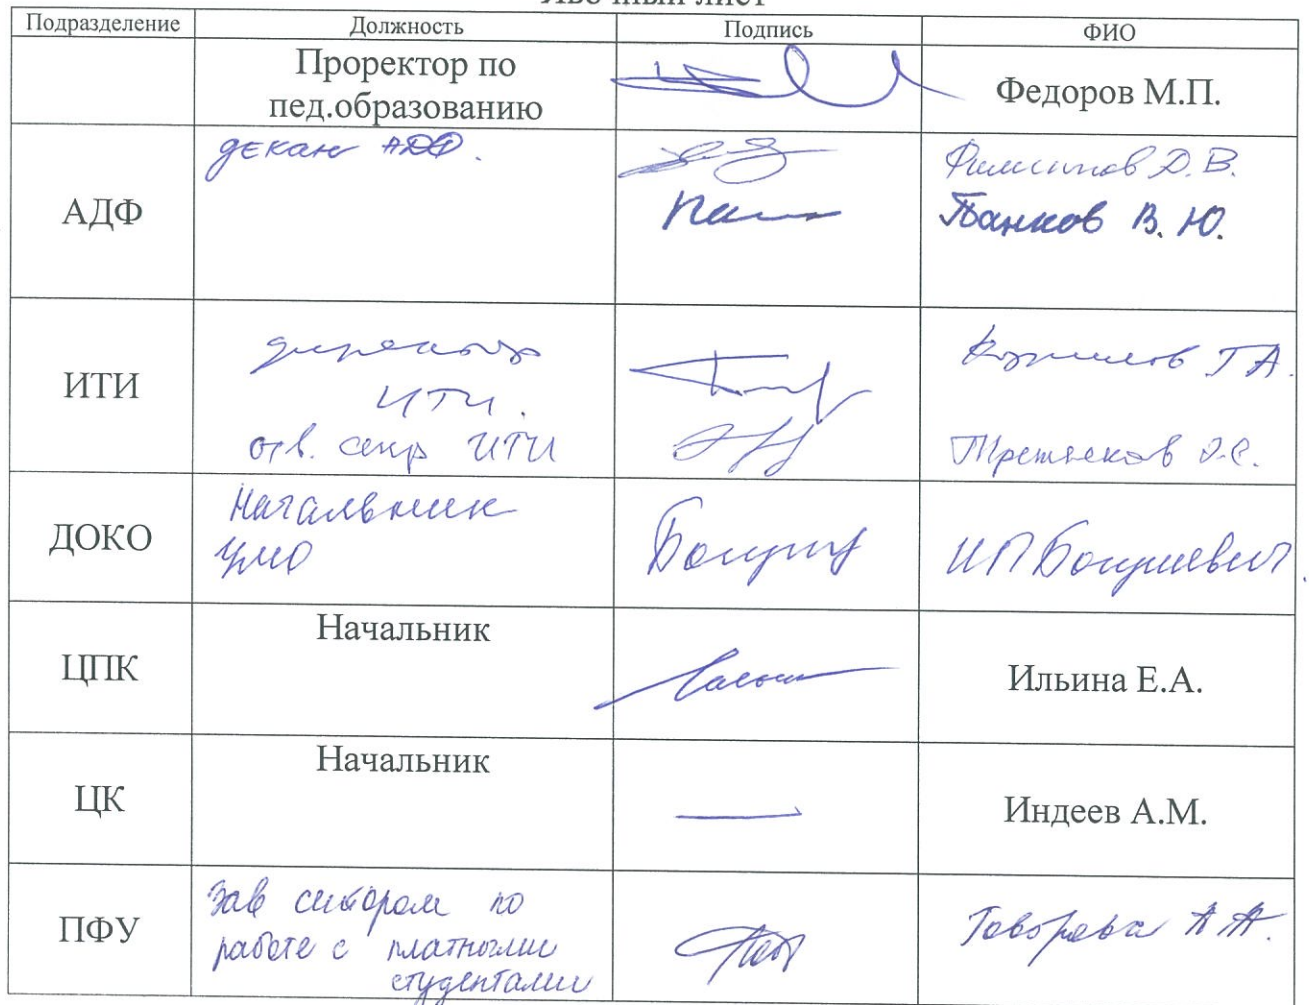 Явочный лист
Подразделение Должность Подпись ФИО
Проректор по
пед.образованию
Федоров М.П.
АДФ
декан АДФ.
Филиппов Д.В.
Панков В.Ю.
ИТИ
директор
ИТИ.
отв. секр ИТИ
Корнилов Г.А.
Третьяков
ДОКО
Начальник
УМО
И П Богушевич
ЦПК
Начальник
Ильина Е.А.
ЦК
Начальник
Индеев А.М.
ПФУ
Зав сектором по
работе с платными
студентами
Говорова А.А.